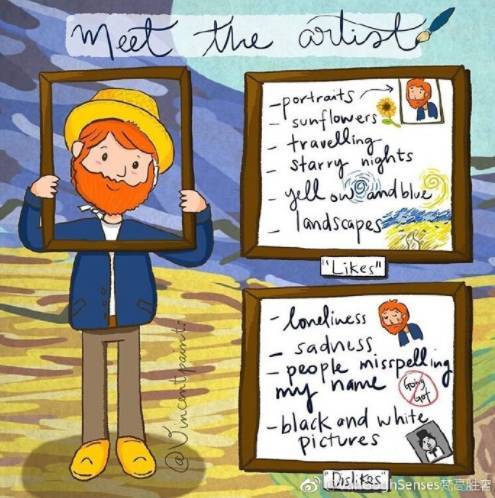 Meet the artist
-portraits
- sunflowers
- travelling
- starry nights
- yellow and blue
landscapes
"Likes"
- loneliness
- sadness
- people misspelling
my name
- black and white
pictures
"Dislikes"
@Vincentpaints
Senses梵高胜者